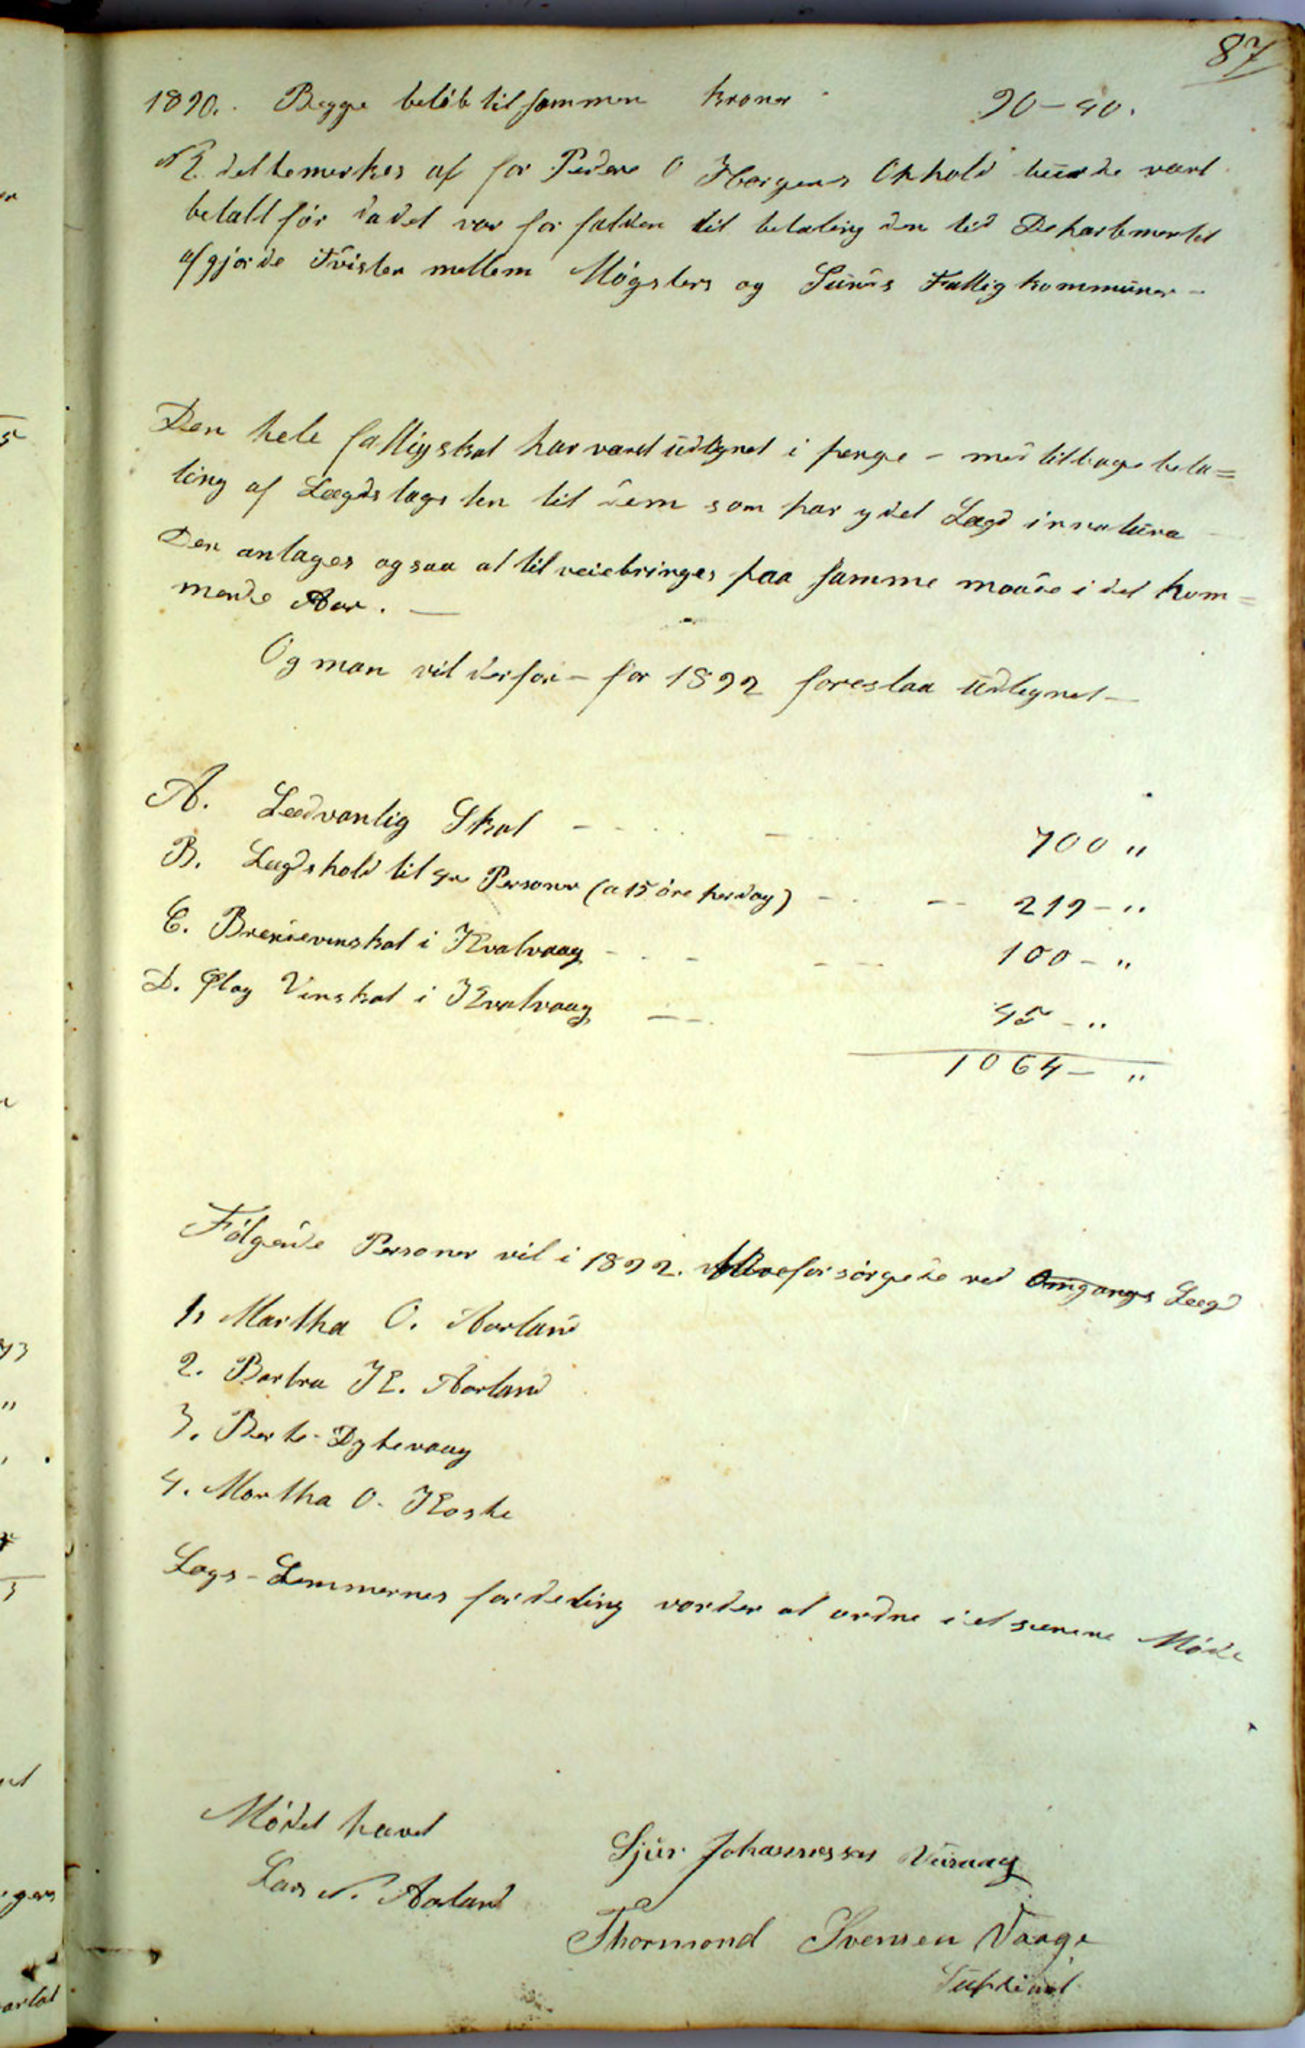 87
1890. Begge beløb tilsammen Kroner 90-40.
NB det bemerkes at for Peder O Ophold burde vært
betalt før da det var forfalden til betaling den tid Departementet
afgjorde Tvisten mellem Møgsters og Sunds Fattigkommuner -
Den hele fattigskat har været udlignet i penge - med tilbagebeta=
ling af Lægdslagsten til dem som har ydet Lægd innatura
Den antages ogsaa at tilveiebringes paa samme maade i det kom=
mende Aar. -
Og man vil derfor - for 1892 foreslaa Udlignet -
A. Sædvanlig Skat 700 "
B. Lægdshold til Personer (a 15 øre per dag) 219 - "
C. Brendevinskat i Kvalvaag 100 - "
D. Øl og Vinskat i Kvalvaag 45 - "
1064 - "
Følgende Personer vil i 1892. blive forsørgede ved Omgangs Lægd
1. Martha O. Aarland
2. Barbra K. Aarland
3. Berte Dykevaag
4. Martha O. Koste
Lægs-Lemmernes fordeling vorder at ordne i et senere Møde
Mødet hævet
Lars N. Aarland
Sjur Johannessen
Thormond Svensen Vaage